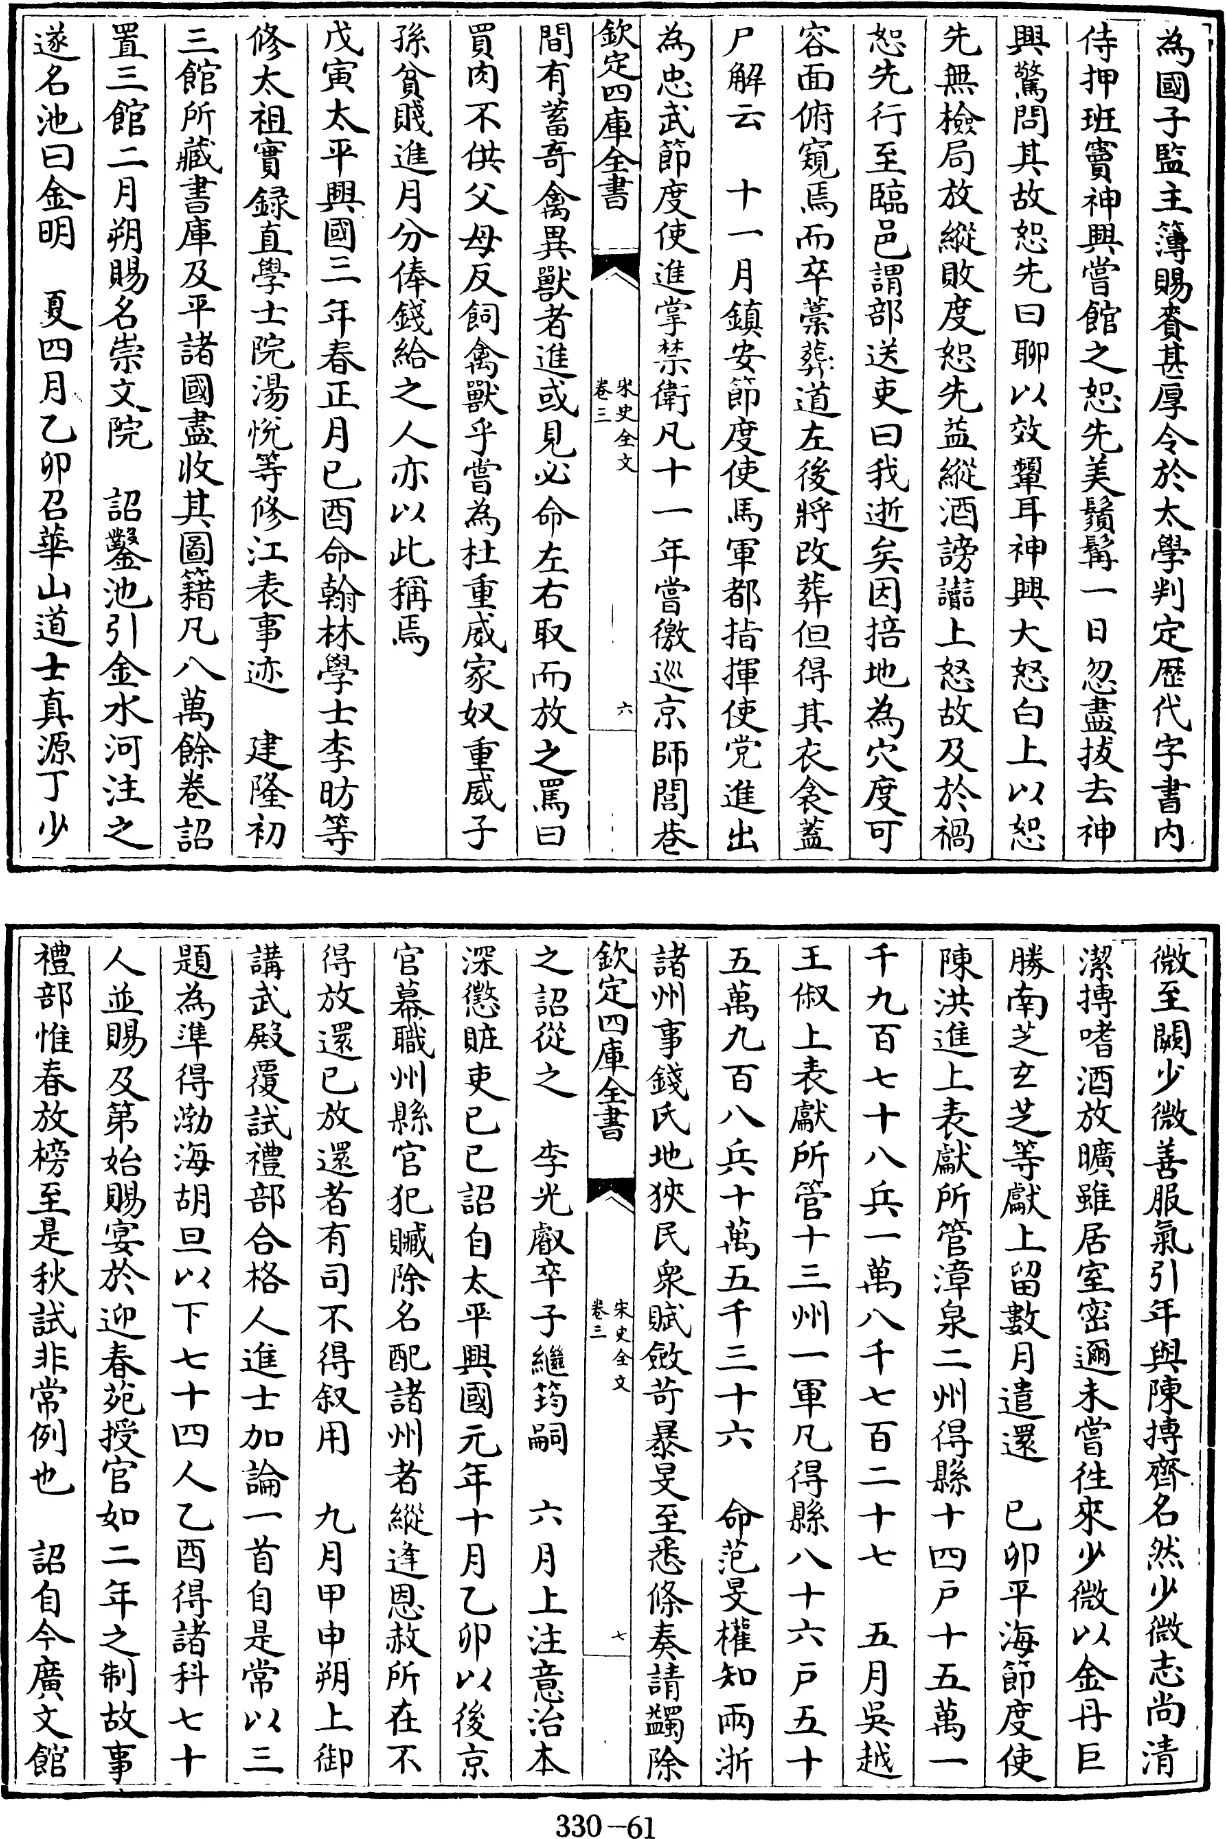 為國子監主簿賜賚甚厚令於太學判定歷代字書内
侍押班竇神興嘗館之恕先美鬚髯一日忽盡拔去神
興驚問其故恕先曰聊以效顰耳神興大怒白上以恕
先無檢局放縱敗度恕先益縱酒謗讟上怒故及於禍
恕先行至臨邑謂部送吏曰我逝矣因掊地為穴度可
容面俯窺焉而卒藁葬道左後將改葬但得其衣衾蓋
尸解云　十一月鎮安節度使馬軍都指揮使党進出
為忠武節度使進掌禁衛凡十一年嘗徼巡京師閭巷
欽定四庫全書　宋史全文 卷三　六
間有蓄奇禽異獸者進或見必命左右取而放之罵曰
買肉不供父母反飼禽獸乎嘗為杜重威家奴重威子
孫貧賤進月分俸錢給之人亦以此稱焉
戊寅太平興國三年春正月已酉命翰林學士李昉等
修太祖實録直學士院湯悅等修江表事迹　建隆初
三館所藏書庫及平諸國盡收其圖籍凡八萬餘卷詔
置三館二月朔賜名崇文院　詔鑿池引金水河注之
遂名池曰金明　夏四月乙卯召華山道士真源丁少
微至闕少微善服氣引年與陳摶齊名然少微志尚清
潔摶嗜酒放曠雖居室密邇未嘗徃來少微以金丹巨
勝南芝玄芝等獻上留數月遣還　已卯平海節度使
陳洪進上表獻所管漳泉二州得縣十四戸十五萬一
千九百七十八兵一萬八千七百二十七　五月吳越
王俶上表獻所管十三州一軍凡得縣八十六戸五十
五萬九百八兵十萬五千三十六　命范旻權知兩浙
諸州事錢氏地狹民衆賦斂苛暴旻至悉條奏請蠲除
欽定四庫全書　宋史全文 卷三　七
之詔從之　李光叡卒子繼筠嗣　六月上注意治本
深懲賍吏已巳詔自太平興國元年十月乙卯以後京
官幕職州縣官犯贓除名配諸州者縱逢恩赦所在不
得放還已放還者有司不得叙用　九月甲申朔上御
講武殿覆試禮部合格人進士加論一首自是常以三
題為準得渤海胡旦以下七十四人乙酉得諸科七十
人並賜及第始賜宴於迎春苑授官如二年之制故事
禮部惟春放榜至是秋試非常例也　詔自今廣文館
330-61